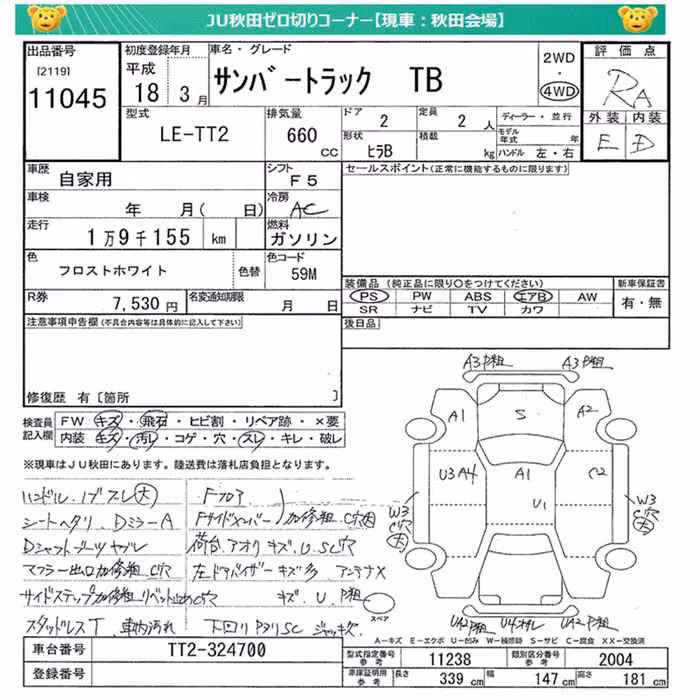 JU秋田ゼロ切りコーナー【現車：秋田会場】
出品番号
[2119]
11045
初度登録年月
平成
18 3月
車名・グレード
サンバートラック TB
2WD
・
4WD
評価点
RA
外装 内装
E D
型式
LE-TT2
排気量
660 cc
ドア
2
定員
2 人
ディーラー・並行
モデル年式 年
形状
ヒラB
積載
kg
ハンドル 左・右
車歴
自家用
シフト
F5
セールスポイント(正常に機能するものに限ります)
車検
年 月( 日)
冷房
AC
走行
1万9千155 km
燃料
ガソリン
色
フロストホワイト
色替
色コード
59M
装備品 (純正品に限り○をつけてください)
PS PW ABS エアB AW
SR ナビ TV カワ
新車保証書
有・無
R券
7,530 円
名変通知期限
月 日
後日品
注意事項申告欄(不具合内容等は具体的に記入して下さい)
修復歴 有〔箇所 〕
検査員記入欄
FW キズ・飛石・ヒビ割・リペア跡・×要
内装 キズ・汚レ・コゲ・穴・スレ・キレ・破レ
※現車はJU秋田にあります。陸送費は落札店負担となります。
ハンドル、ノブスレ大
シートヘタリ、DミラーA
Dシャフトブーツヤブレ
マフラー出口加修粗C穴
サイドステップ加修粗リベット止めC穴
スタッドレスT 車内汚れ
Fフロア
Fサイドメンバー 加修粗 C穴大
荷台、アオリキズ、U、SC穴
左ドアバイザーキズ多 アンテナX
キズ、U、P粗
下回りPヌリSC ジャッキ欠
A3P粗 A3P粗
A1 S A2
U3A4 A1 C2
U1
W3 C穴大
W3 C穴大
スペア
U4オレ
A-キズ E-エクボ U-凹み W-補修跡 S-サビ C-腐食 XX-交換済
車台番号
TT2-324700
登録番号
型式指定番号 参考
11238
類別区分番号 参考
2004
車庫証明用 参考
長さ 339 cm
幅 147 cm
高さ 181 cm